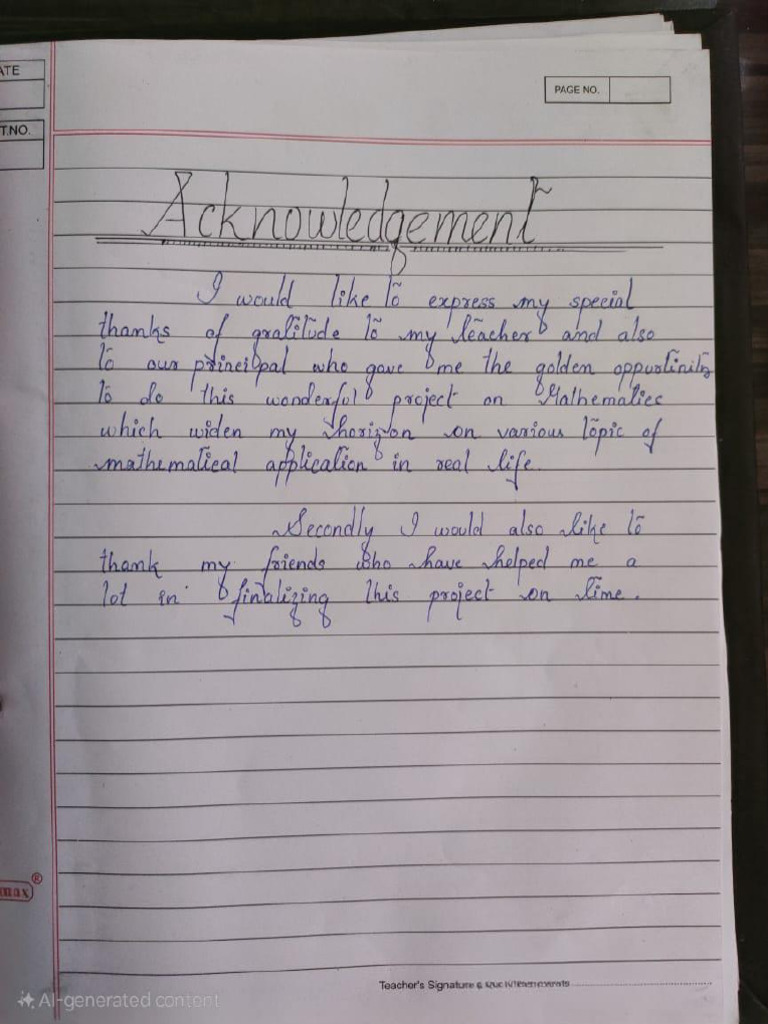 ATE
PAGE NO.
T.NO.
Acknowledgement
I would like to express my special
thanks of gratitude to my teacher and also
to our principal who gave me the golden oppurtinity
to do this wonderful project on Mathematics
which widen my horizon on various topic of
mathematical application in real life.
Secondly I would also like to
thank my friends who have helped me a
lot in finalizing this project on time.
max®
Teacher's Signature &
AI-generated content